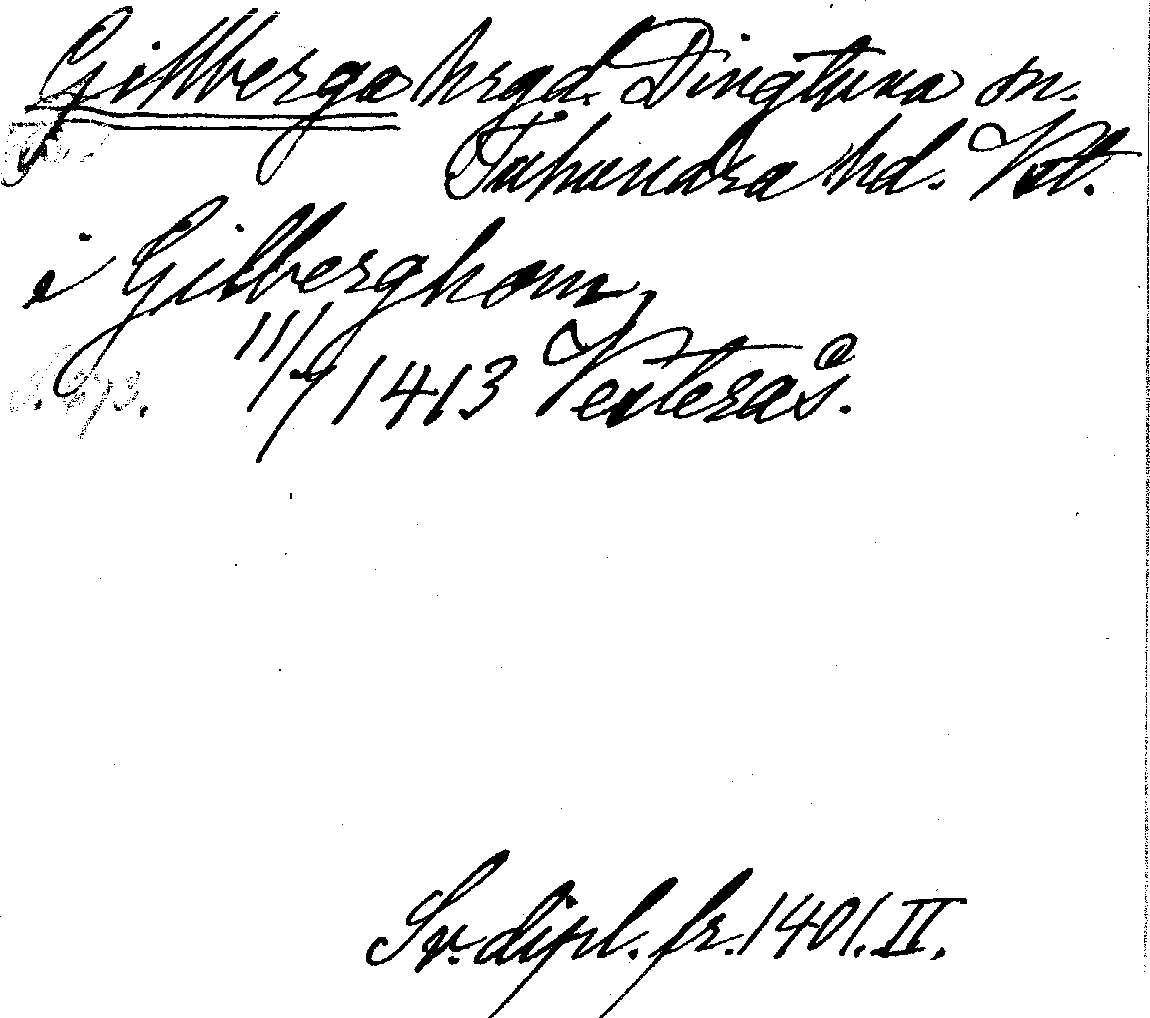 Gillberga hrgd. Dingtuna sn.
Tuhundra hd. Vstl.
i Gilberghom,
11/9 1413 Vesterås.
Sv. dipl. fr. 1401. II.